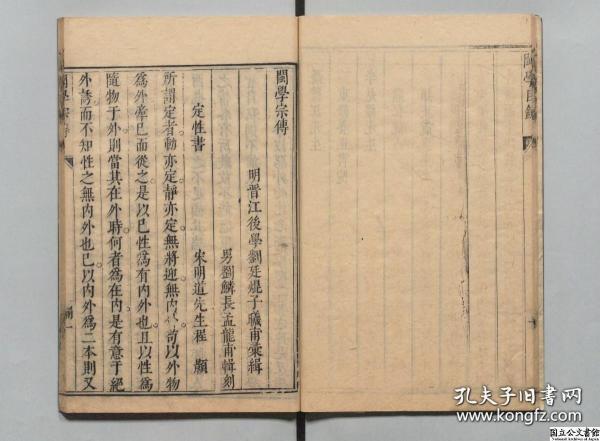 閩學宗傳
明晉江後學劉廷焜子礒甫彙輯
男劉鱗長孟龍甫輯刻
定性書
宋明道先生程顥
所謂定者動亦定靜亦定無將迎無內外苟以外物
為外牽已而從之是以已性爲有內外也且以性爲
隨物于外則當其在外時何者爲在內是有意于絕
外誘而不知性之無內外也已以內外爲二本則又
孔夫子旧书网
www.kongfz.com
国立公文書館
National Archives of Japan